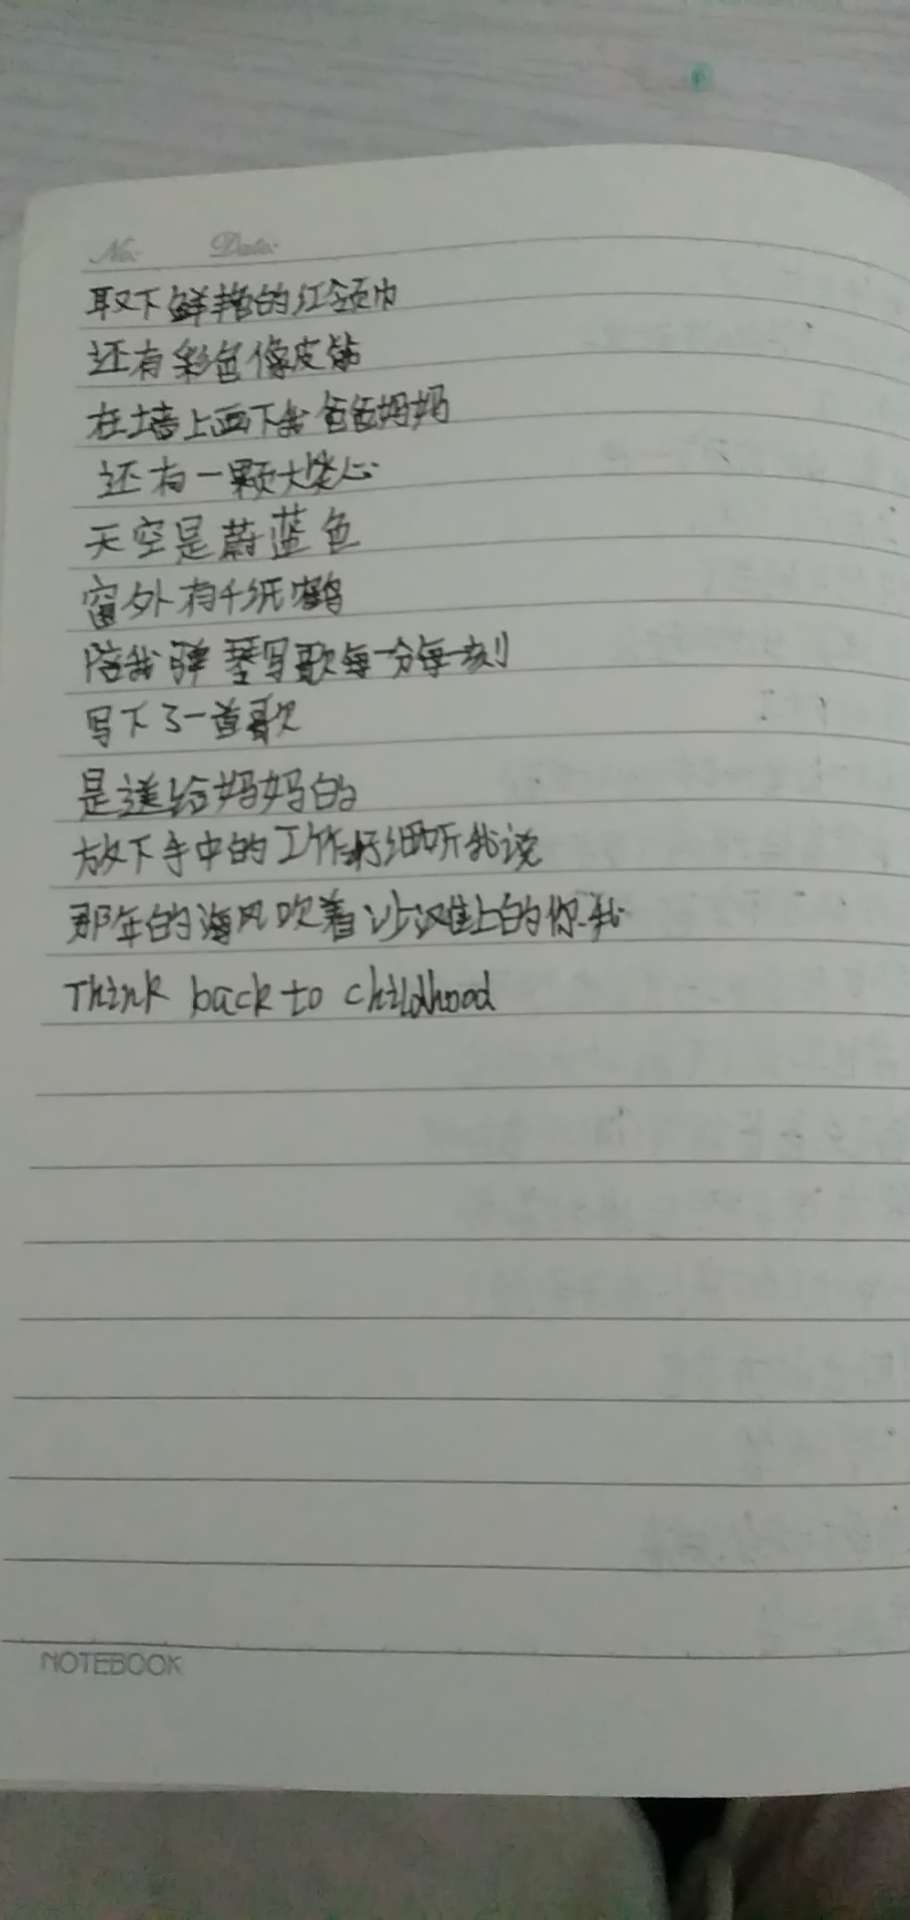 No: Date:
取下鲜艳的红领巾
还有彩色像皮筋
在墙上画下我爸爸妈妈
还有一颗大笑心
天空是蔚蓝色
窗外有千纸鹤
陪我弹琴写歌每一分每一刻
写下了一首歌
是送给妈妈的
放下手中的工作仔细听我说
那年的海风吹着沙滩上的你.我
Think back to childhood
NOTEBOOK